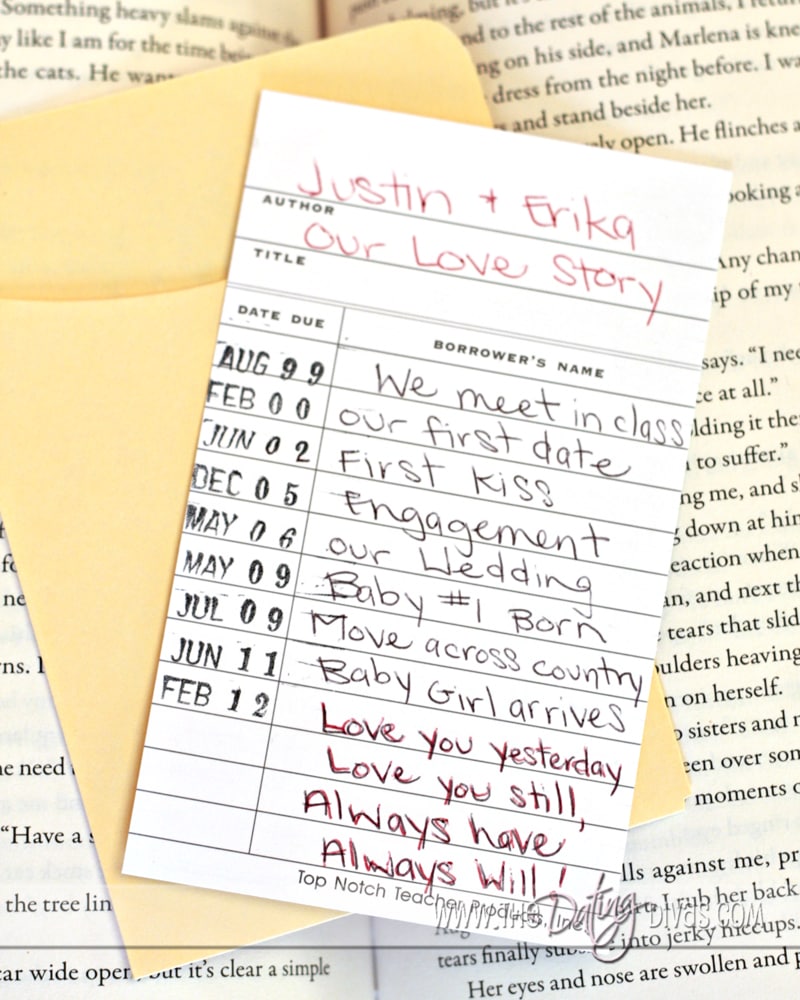 Something heavy slams against the
y like I am for the time being
the cats. He want
nd to the rest of the animals, I
ng on his side, and Marlena is
dress from the night before. I
and stand beside her.
open. He flinches
ooking
Any
ip of my
says. "I
ce at all."
lding it
to suffer."
ng me, and
down at
eaction when
an, and next
tears that
oulders heaving
n on herself.
sisters and
een over
moments
Justin + Erika
AUTHOR
Our Love Story
TITLE
DATE DUE BORROWER'S NAME
AUG 99 We meet in class
FEB 00 our first date
JUN 02 First Kiss
DEC 05 Engagement
MAY 06 our Wedding
MAY 09 Baby #1 Born
JUL 09 Move across country
JUN 11 Baby Girl arrives
FEB 12 Love you yesterday
Love you still,
Always have
Always Will!
Top Notch Teacher Products, Inc.
www.TheDatingDivas.com
ne need
"Have a
the tree
ear wide open, but it's clear a simple
lls against me,
I rub her back
tears finally into jerky hiccups.
Her eyes and nose are swollen and